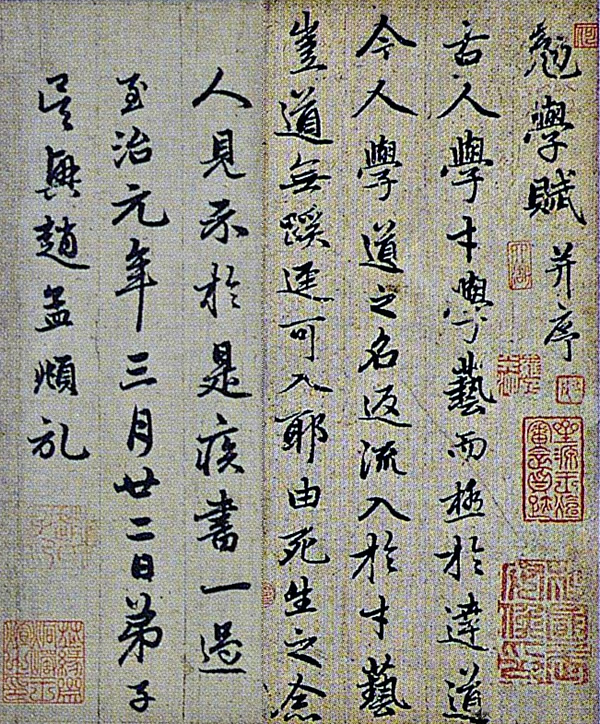 勉學賦并序
古人學才學藝而極於達道
今人學道之名返流入於才藝
豈道無蹊逕可入耶由死生之念
人見示於是疾書一過
至治元年三月廿二日弟子
吳興趙孟頫